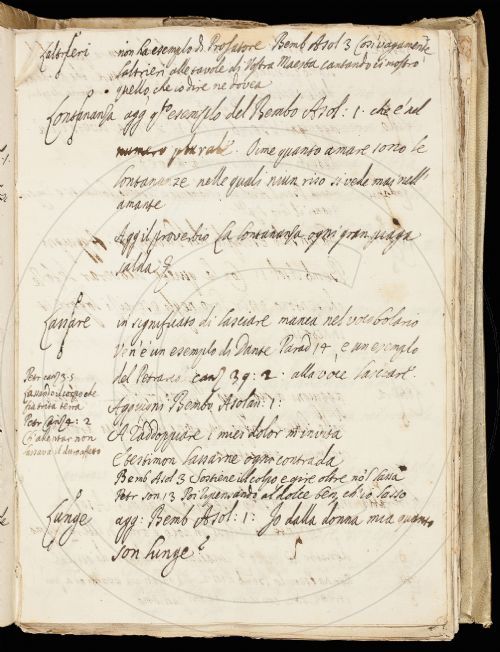 L'altrieri non ha esempio di Prosatore Bemb Asol 3 Così vagamente
l'altrieri alle tavole di Vostra Maestà cantando ci mostrò
quello che io dire ne dovea
Lontananza agg qto esempio del Bembo Asol: 1: che è nel
numero plurale. Oime quanto amare sono le
lontananze nelle quali niun riso si vede mai nell'
amante
Agg il proverbio La lontananza ogni gran piaga
salda
Lassare in significato di lasciare manca nel vocabolario
Ve n'è un esempio di Dante Parad 14, e un esempio
del Petrarca canz 39: 2: alla voce lasciare
Petr canz 3. 5
Petr Canz 4: 2
Aggiugni Bembo Asolan: 1:
A raddoppiare i miei dolor m'invita
E testimon lassarne ogni contrada
Bemb Asol 3 Sostiene il colpo e gire oltre no'l lassa
Petr Son 13 Poi ripensando al dolce ben, ch'io lasso
Lunge agg: Bemb Asol: 1: Io dalla donna mia quanto
son lunge